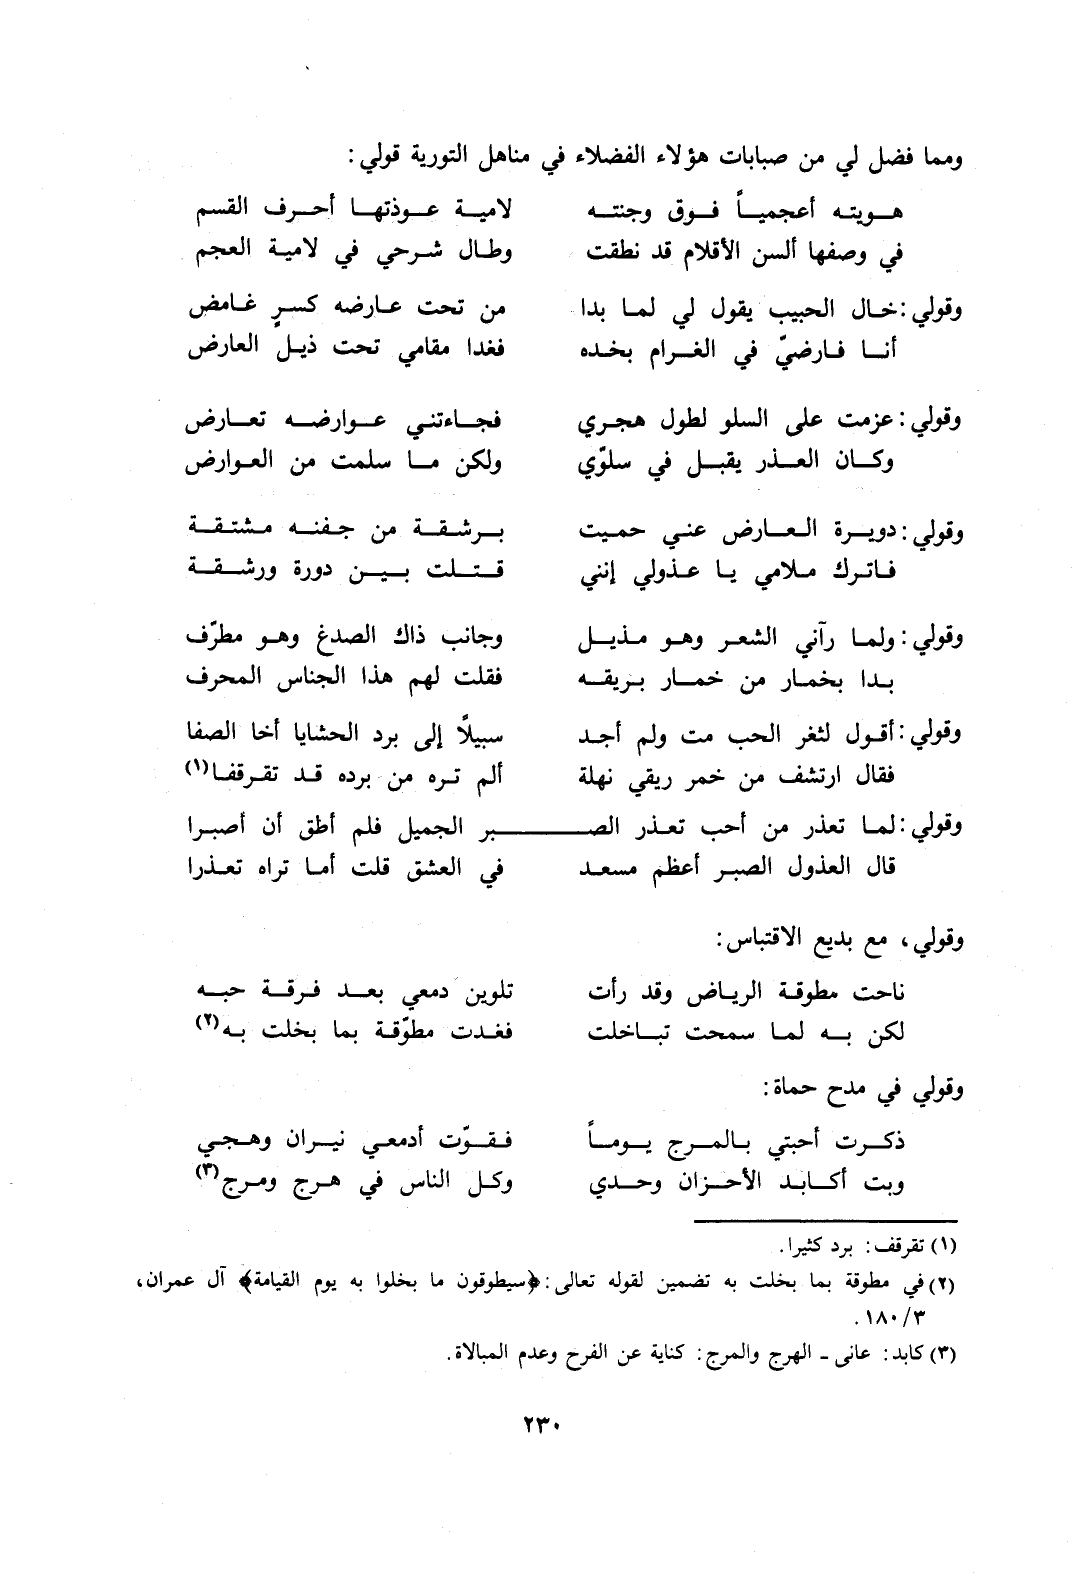 ومما فضل لي من صبابات هؤلاء الفضلاء في مناهل التورية قولي:
هويته أعجمياً فوق وجنته لامية عوذتها أحرف القسم
في وصفها ألسن الأقلام قد نطقت وطال شرحي في لامية العجم
وقولي: خال الحبيب يقول لي لما بدا من تحت عارضه كسرٍ غامض
أنا فارضيّ في الغرام بخده فغدا مقامي تحت ذيل العارض
وقولي: عزمت على السلو لطول هجري فجاءتني عوارضه تعارض
وكان العذر يقبل في سلوّي ولكن ما سلمت من العوارض
وقولي: دويرة العارض عني حميت برشقة من جفنه مشتقة
فاترك ملامي يا عذولي إنني قتلت بين دورة ورشقة
وقولي: ولما رآني الشعر وهو مذيل وجانب ذاك الصدغ وهو مطرّف
بدا بخمار من خمار بريقه فقلت لهم هذا الجناس المحرف
وقولي: أقول لثغر الحب مت ولم أجد سبيلاً إلى برد الحشايا أخا الصفا
فقال ارتشف من خمر ريقي نهلة ألم تره من برده قد تقرقفا(١)
وقولي: لما تعذر من أحب تعذر الصـبر الجميل فلم أطق أن أصبرا
قال العذول الصبر أعظم مسعد في العشق قلت أما تراه تعذرا
وقولي، مع بديع الاقتباس:
ناحت مطوقة الرياض وقد رأت تلوين دمعي بعد فرقة حبه
لكن به لما سمحت تباخلت فغدت مطوّقة بما بخلت به(٢)
وقولي في مدح حماة:
ذكرت أحبتي بالمرج يوماً فقوّت أدمعي نيران وهجي
وبت أكابد الأحزان وحدي وكل الناس في هرج ومرج(٣)
(١) تقرقف: برد كثيرا.
(٢) في مطوقة بما بخلت به تضمين لقوله تعالى: ﴿سيطوقون ما بخلوا به يوم القيامة﴾ آل عمران،
١٨٠/٣.
(٣) كابد: عانى ـ الهرج والمرج: كناية عن الفرح وعدم المبالاة.
٢٣٠